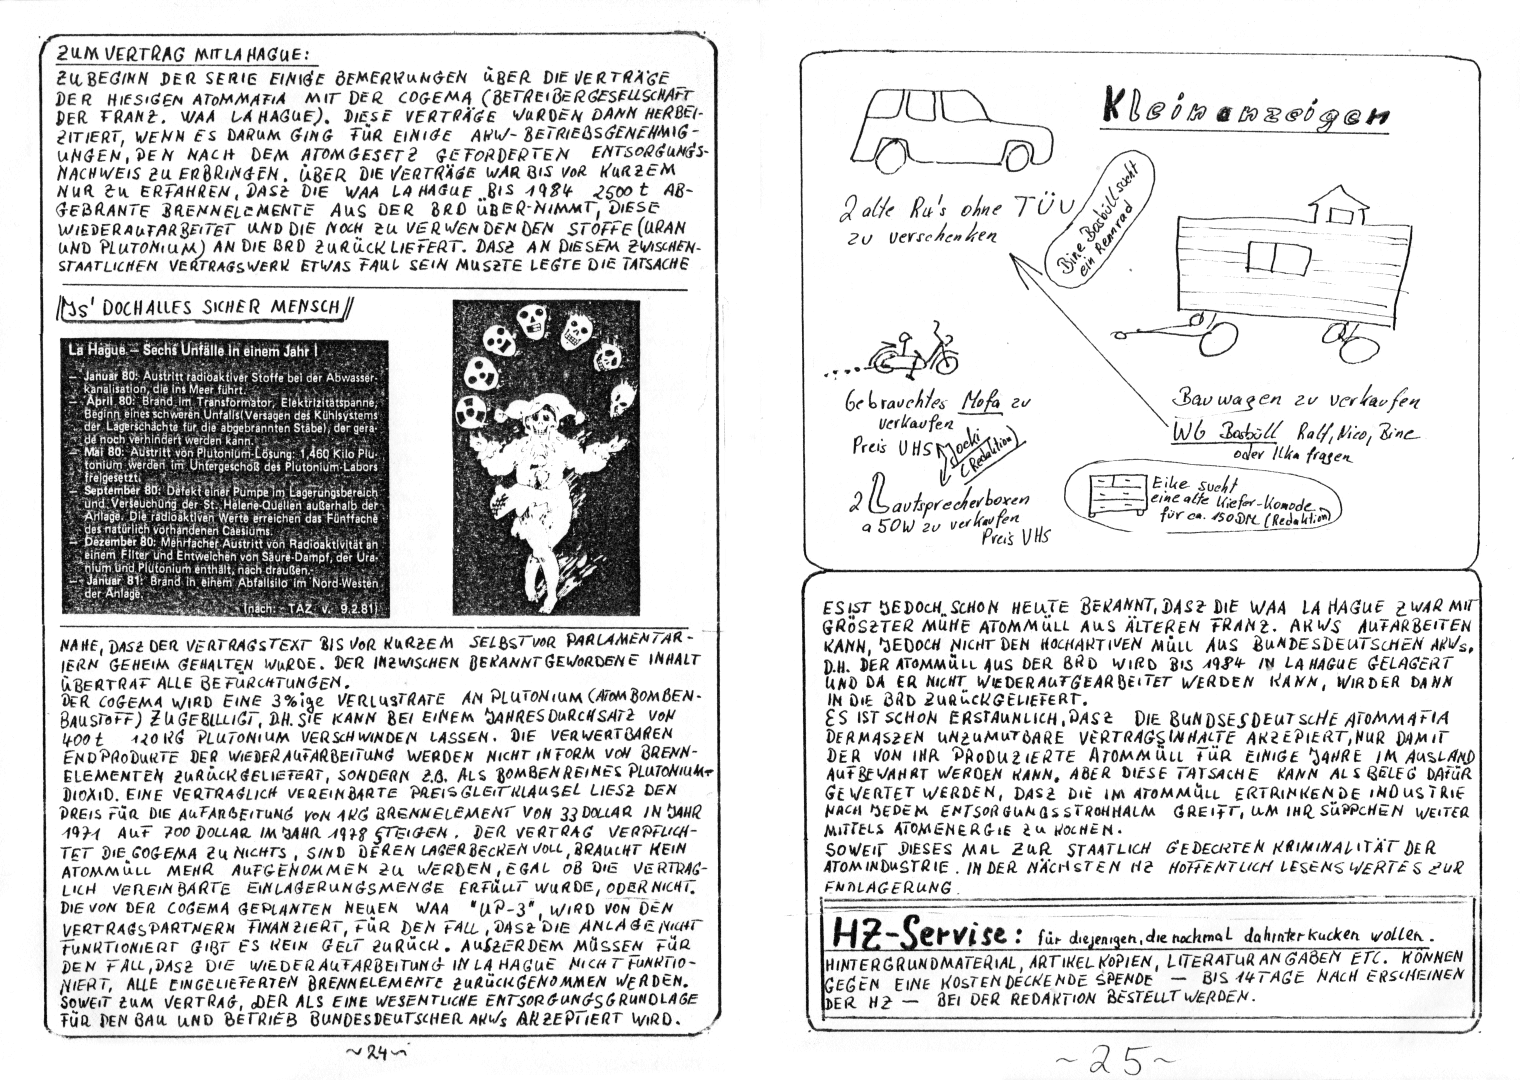 ZUM VERTRAG MIT LA HAGUE:
ZU BEGINN DER SERIE EINIGE BEMERKUNGEN ÜBER DIE VERTRÄGE
DER HIESIGEN ATOMMAFIA MIT DER COGEMA (BETREIBERGESELLSCHAFT
DER FRANZ. WAA LA HAGUE). DIESE VERTRÄGE WURDEN DANN HERBEI-
ZITIERT, WENN ES DARUM GING FÜR EINIGE AKW-BETRIEBSGENEHMIG-
UNGEN, DEN NACH DEM ATOMGESETZ GEFORDERTEN ENTSORGUNGS-
NACHWEIS ZU ERBRINGEN. ÜBER DIE VERTRÄGE WAR BIS VOR KURZEM
NUR ZU ERFAHREN, DASZ DIE WAA LA HAGUE BIS 1984 2500 t AB-
GEBRANTE BRENNELEMENTE AUS DER BRD ÜBER-NIMMT, DIESE
WIEDERAUFARBEITET UND DIE NOCH ZU VERWENDENDEN STOFFE (URAN
UND PLUTONIUM) AN DIE BRD ZURÜCKLIEFERT. DASZ AN DIESEM ZWISCHEN-
STAATLICHEN VERTRAGSWERK ETWAS FAUL SEIN MUSZTE LEGTE DIE TATSACHE
"IS' DOCH ALLES SICHER MENSCH"
La Hague – Sechs Unfälle in einem Jahr!
– Januar 80: Austritt radioaktiver Stoffe bei der Abwasser-
kanalisation, die ins Meer führt.
– April 80: Brand im Transformator, Elektrizitätspanne,
Beginn eines schweren Unfalls (Versagen des Kühlsystems
der Lagerschächte für die abgebrannten Stäbe), der gera-
de noch verhindert werden kann.
– Mai 80: Austritt von Plutonium-Lösung: 1,460 Kilo Plu-
tonium werden im Untergeschoß des Plutonium-Labors
freigesetzt.
– September 80: Defekt einer Pumpe im Lagerungsbereich
und Verseuchung der St. Helene-Quellen außerhalb der
Anlage. Die radioaktiven Werte erreichen das Fünffache
des natürlich vorhandenen Caesiums.
– Dezember 80: Mehrfacher Austritt von Radioaktivität an
einem Filter und Entweichen von Säure-Dampf, der Ura-
nium und Plutonium enthält, nach draußen.
– Januar 81: Brand in einem Abfallsilo im Nord-Westen
der Anlage.
(nach: – TAZ v. 9.2.81)
NAHE, DASZ DER VERTRAGSTEXT BIS VOR KURZEM SELBST VOR PARLAMENTAR-
IERN GEHEIM GEHALTEN WURDE. DER INZWISCHEN BEKANNT GEWORDENE INHALT
ÜBERTRAF ALLE BEFÜRCHTUNGEN.
DER COGEMA WIRD EINE 3%ige VERLUSTRATE AN PLUTONIUM (ATOMBOMBEN-
BAUSTOFF) ZUGEBILLIGT, D.H. SIE KANN BEI EINEM JAHRESDURCHSATZ VON
400 t 120 KG PLUTONIUM VERSCHWINDEN LASSEN. DIE VERWERTBAREN
ENDPRODURTE DER WIEDERAUFARBEITUNG WERDEN NICHT IN FORM VON BRENN-
ELEMENTEN ZURÜCKGELIEFERT, SONDERN Z.B. ALS BOMBENREINES PLUTONIUM-
DIOXID. EINE VERTRAGLICH VEREINBARTE PREISGLEITKLAUSEL LIESZ DEN
PREIS FÜR DIE AUFARBEITUNG VON 1KG BRENNELEMENT VON 33 DOLLAR IM JAHR
1971 AUF 700 DOLLAR IM JAHR 1978 STEIGEN. DER VERTRAG VERPFLICH-
TET DIE COGEMA ZU NICHTS, SIND DEREN LAGERBECKEN VOLL, BRAUCHT KEIN
ATOMMÜLL MEHR AUFGENOMMEN ZU WERDEN, EGAL OB DIE VERTRAG-
LICH VEREINBARTE EINLAGERUNGSMENGE ERFÜLLT WURDE, ODER NICHT.
DIE VON DER COGEMA GEPLANTEN NEUEN WAA "UP-3", WIRD VON DEN
VERTRAGSPARTNERN FINANZIERT, FÜR DEN FALL, DASZ DIE ANLAGE NICHT
FUNKTIONIERT GIBT ES KEIN GELT ZURÜCK. AUSZERDEM MÜSSEN FÜR
DEN FALL, DASZ DIE WIEDERAUFARBEITUNG IN LA HAGUE NICHT FUNKTIO-
NIERT, ALLE EINGELIEFERTEN BRENNELEMENTE ZURÜCKGENOMMEN WERDEN.
SOWEIT ZUM VERTRAG, DER ALS EINE WESENTLICHE ENTSORGUNGSGRUNDLAGE
FÜR DEN BAU UND BETRIEB BUNDESDEUTSCHER AKWs AKZEPTIERT WIRD.
~24~
Kleinanzeigen
2 alte R4's ohne TÜV
zu verschenken
Bine Bosbüll sucht
ein Rennrad
Gebrauchtes Mofa zu
verkaufen
Preis VHS
Jocki
(Redaktion)
2 Lautsprecherboxen
a 50W zu verkaufen
Preis VHS
Bauwagen zu verkaufen
WG Bosbüll Ralf, Nico, Bine
oder Ilka fragen
Eike sucht
eine alte Kiefer-Komode
für ca. 150 DM (Redaktion)
ES IST JEDOCH SCHON HEUTE BEKANNT, DASZ DIE WAA LA HAGUE ZWAR MIT
GRÖSZTER MÜHE ATOMMÜLL AUS ÄLTEREN FRANZ. AKWS AUFARBEITEN
KANN, JEDOCH NICHT DEN HOCHAKTIVEN MÜLL AUS BUNDESDEUTSCHEN AKWs,
D.H. DER ATOMMÜLL AUS DER BRD WIRD BIS 1984 IN LA HAGUE GELAGERT
UND DA ER NICHT WIEDERAUFGEARBEITET WERDEN KANN, WIRD ER DANN
IN DIE BRD ZURÜCKGELIEFERT.
ES IST SCHON ERSTAUNLICH, DASZ DIE BUNDSESDEUTSCHE ATOMMAFIA
DERMASZEN UNZUMUTBARE VERTRAGSINHALTE AKZEPIERT, NUR DAMIT
DER VON IHR PRODUZIERTE ATOMMÜLL FÜR EINIGE JAHRE IM AUSLAND
AUFBEWAHRT WERDEN KANN. ABER DIESE TATSACHE KANN ALS BELEG DAFÜR
GEWERTET WERDEN, DASZ DIE IM ATOMMÜLL ERTRINKENDE INDUSTRIE
NACH JEDEM ENTSORGUNGSSTROHHALM GREIFT, UM IHR SÜPPCHEN WEITER
MITTELS ATOMENERGIE ZU KOCHEN.
SOWEIT DIESES MAL ZUR STAATLICH GEDECKTEN KRIMINALITÄT DER
ATOMINDUSTRIE. IN DER NÄCHSTEN HZ HOFFENTLICH LESENSWERTES ZUR
ENDLAGERUNG.
HZ-Servise: für diejenigen, die nochmal dahinterkucken wollen.
HINTERGRUNDMATERIAL, ARTIKELKOPIEN, LITERATURANGABEN ETC. KÖNNEN
GEGEN EINE KOSTENDECKENDE SPENDE — BIS 14 TAGE NACH ERSCHEINEN
DER HZ — BEI DER REDAKTION BESTELLT WERDEN.
~25~